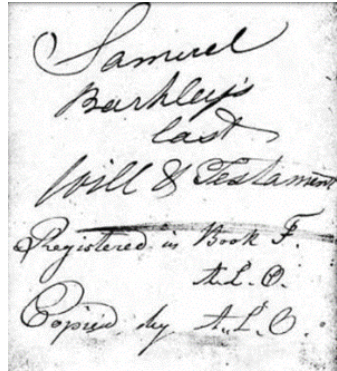 Samuel
Barkley's
last
Will & Testament
Registered in Book F.
A.L.O.
Copied by A.L.O.